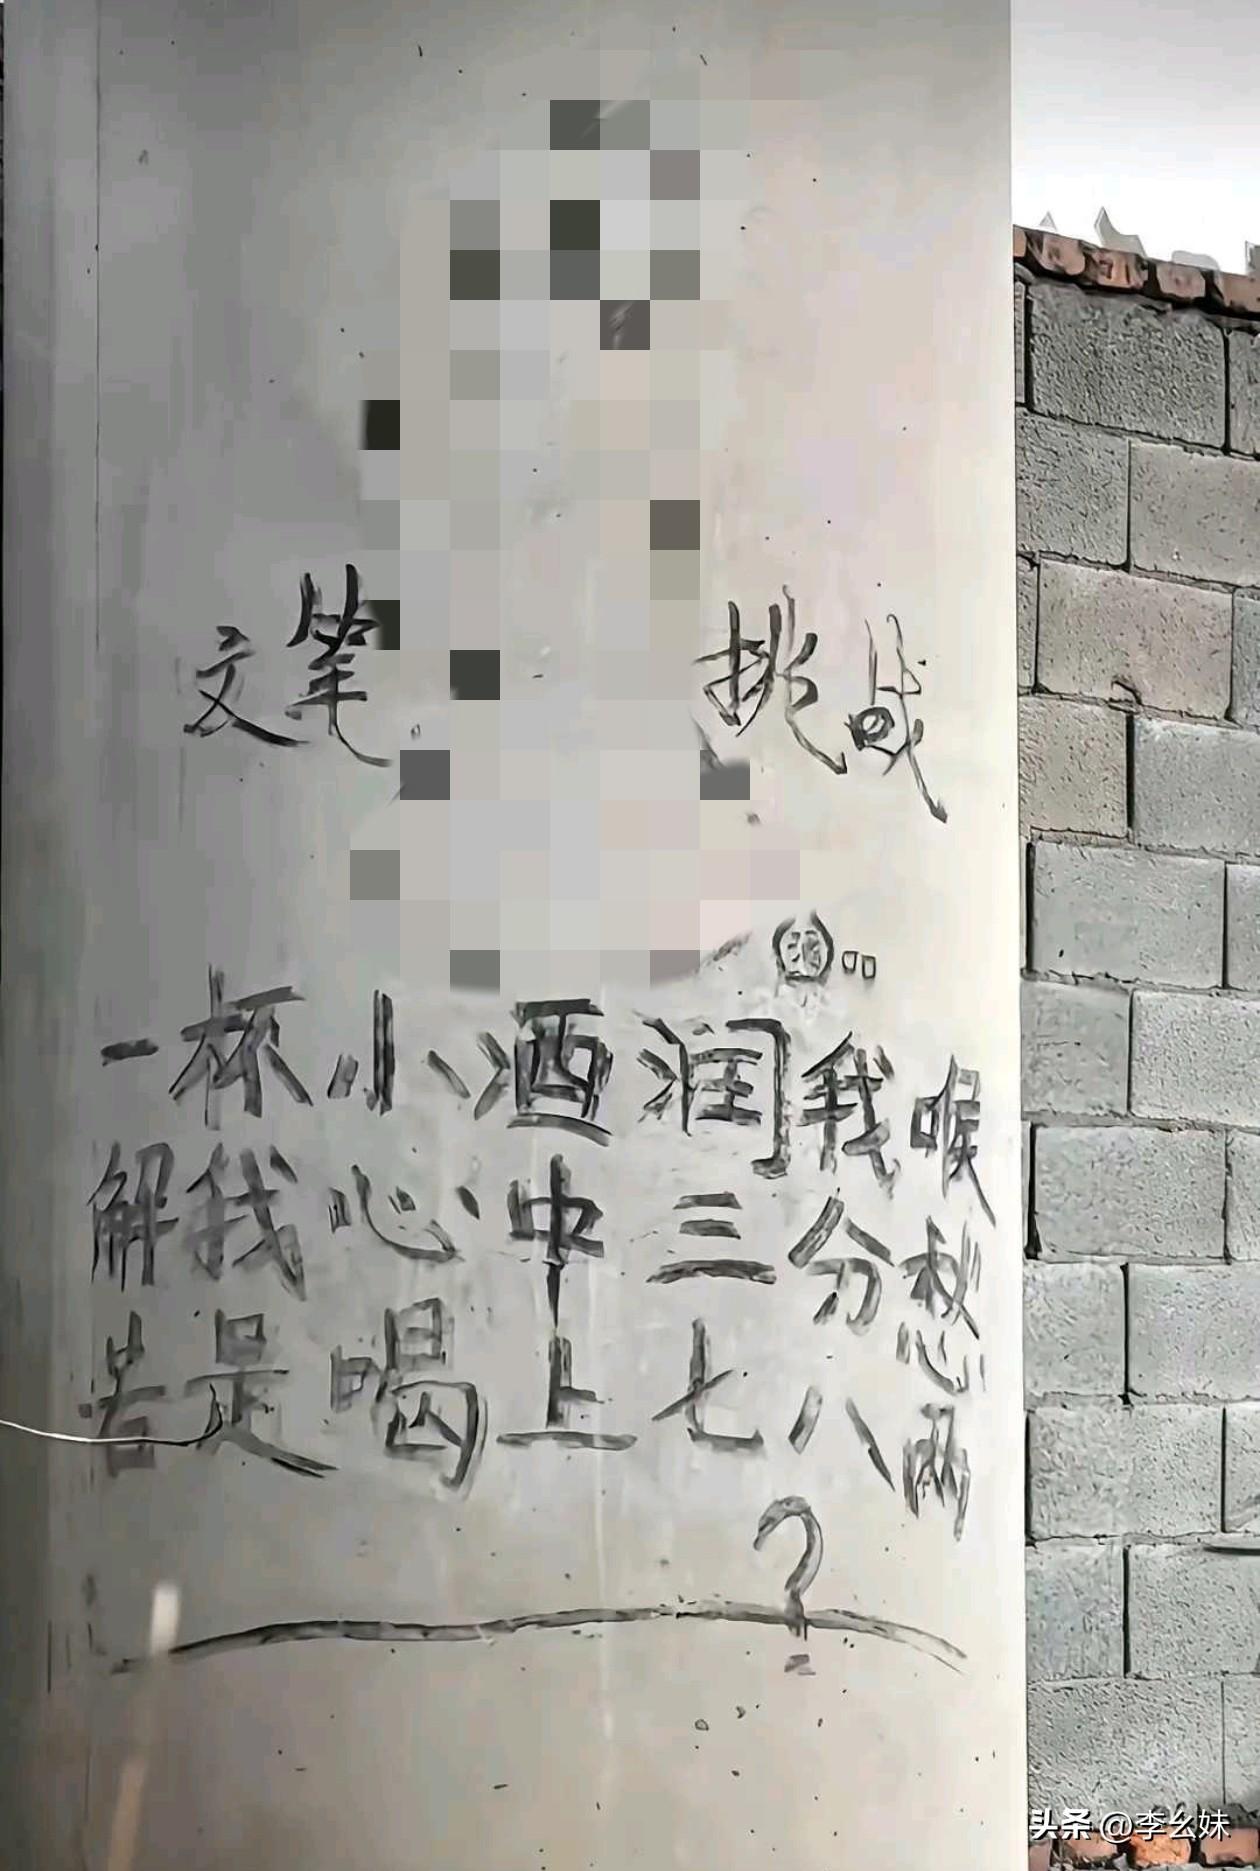 文笔 挑战
一杯小酒润我喉
解我心中三分愁
若是喝上七八两
?
头条 @李幺妹